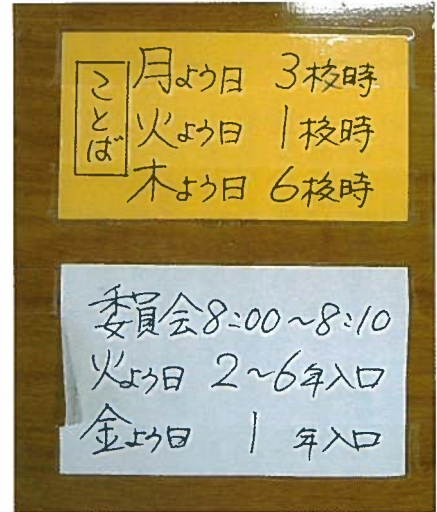 ことば
月よう日 3校時
火よう日 1校時
木よう日 6校時
委員会8:00~8:10
火よう日 2~6年入口
金よう日 1 年入口